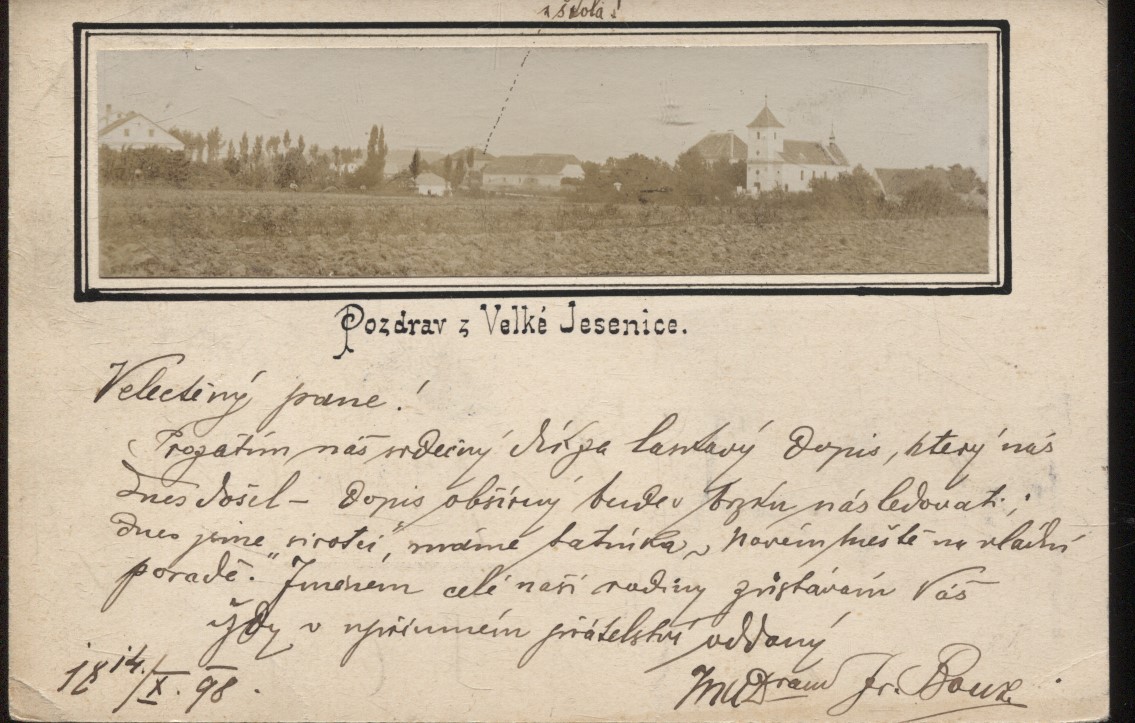 škola!
Pozdrav z Velké Jesenice.
Velectěný pane!
Prozatím náš srdečný dík za laskavý dopis, který nás
dnes došel – dopis obšírný bude v brzku následovati;
dnes jsme „sirotci", máme tatínka „v Novém Městě na vládní
poradě." Jménem celé naší rodiny zůstávám Váš
vždy v upřímném přátelství oddaný
18 14./X. 98.